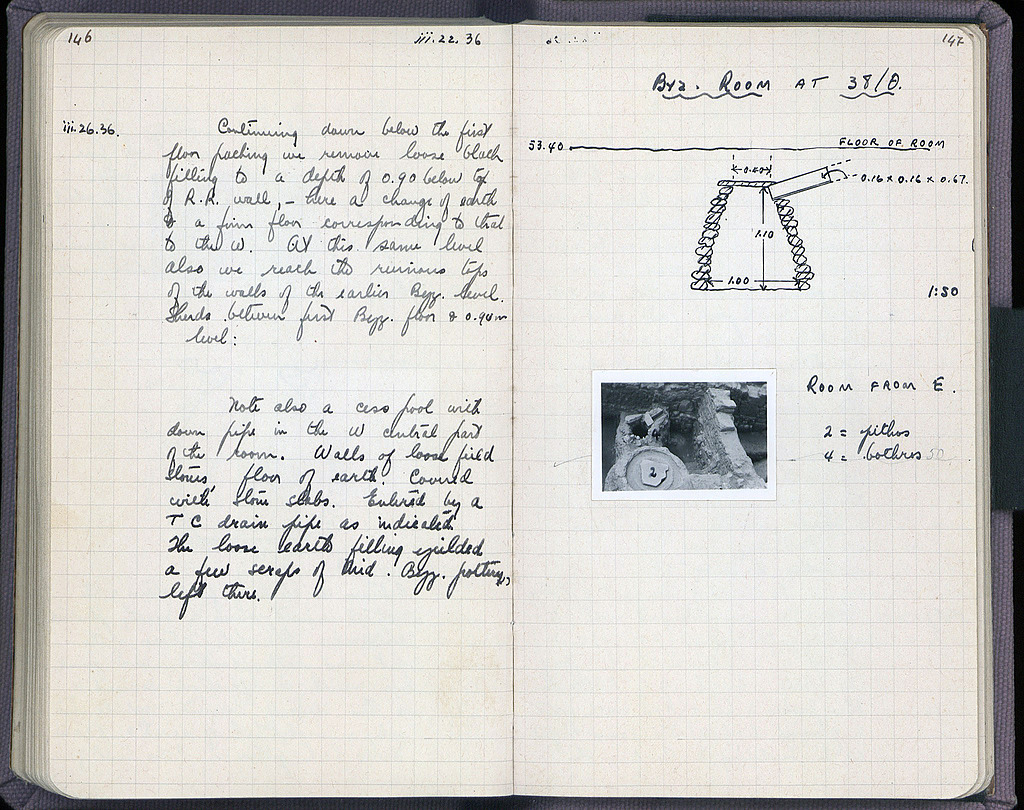 146
iii.22.36
iii.26.36.
Continuing down below the first
floor packing we remove loose black
filling to a depth of 0.90 below top
of R.R. wall, - here a change of earth
& a firm floor corresponding to that
to the W. At this same level
also we reach the ruinous tops
of the walls of the earlier Byz. level.
Sherds between first Byz. floor & 0.90 m
level:
Note also a cess pool with
down pipe in the W central part
of the room. Walls of loose field
stones, floor of earth. Covered
with stone slabs. Entered by a
T C drain pipe as indicated.
The loose earth filling yielded
a few scraps of Mid. Byz. pottery,
left there.
147
Byz. ROOM AT 38/Θ.
53.40
FLOOR OF ROOM
0.40
0.16 x 0.16 x 0.67.
1.10
1.00
1:50
ROOM FROM E.
2 = pithos
4 = bothros
4
2